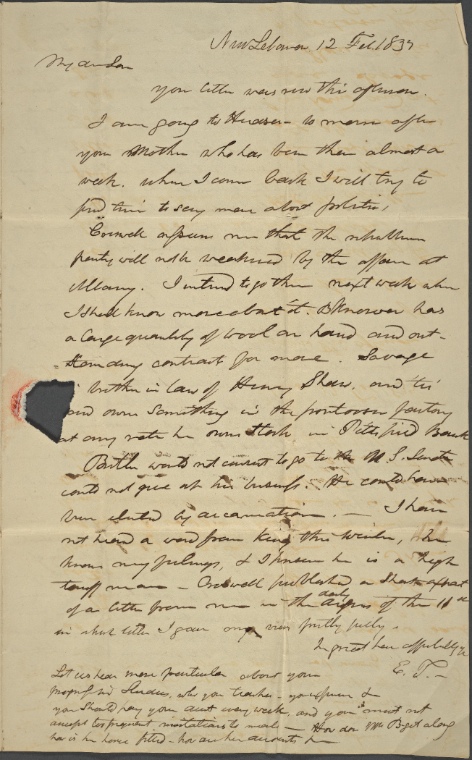 New Lebanon 12 Feb. 1837
My dear Son
your letter was recd this afternoon.
I am going to Hudson to morrow after
your Mother who has been there almost a
week. when I come back I will try to
find time to say more about politics,
Croswell assures me that the republican
party will not be weakened by the affair at
Albany. I intend to go there next week when
I shall know more about it. B Knower has
a large quantity of wool on hand and out-
standing contract for more. Savage
brother in law of Henry Shaw, and his
and owns something in the factory
at any rate he owns Stock in Pittsfield Bank
Butler would not consent to go to the U.S. Senate
could not give up his business. He could have
been elected by acclamation. — I have
not heard a word from King this winter, He
knows my feelings, & I know he is a high
tariff man — Croswell published a Short extract
of a letter from me in the daily Argus of the 11th
in which letter I gave my views pretty fully.
In great haste affectionately yr
E. T. —
Let us hear more particular about your
progress in Studies, who you teacher — your
you Should pay your aunt every week, and you must not
accept too frequent invitations to meals — How does Mr B get along
how is his house filled — how are her accounts,